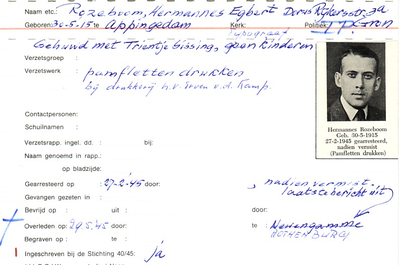 Naam etc.: Rozeboom, Hermannes Egbert Doris Rijkerstr. 3a
Geboren: 30-5-15 te Appingedam Kerk: Politiek: Gron
typograaf
Gehuwd met Trientje Gissing, geen kinderen
Verzetsgroep :
Verzetswerk : pamfletten drukken
bij drukkerij n.v. Erven v.d. Kamp.
Contactpersonen:
Schuilnamen :
Verzetsrapp. ingel. dd. : bij:
Naam genoemd in rapp.:
op bladzijde:
Hermannes Rozeboom
Geb. 30-5-1915
27-2-1945 gearresteerd,
nadien vermist
(Pamfletten drukken)
Gearresteerd op :27-2-'45 door: , nadien vermist.
Gevangen gezeten in : laatste bericht uit
Bevrijd op : uit : door:
Overleden op : 29.5.'45 door: te: Neuengamme
Begraven op : te : ROTHENBURG
Ingeschreven bij de Stichting 40/45: ja